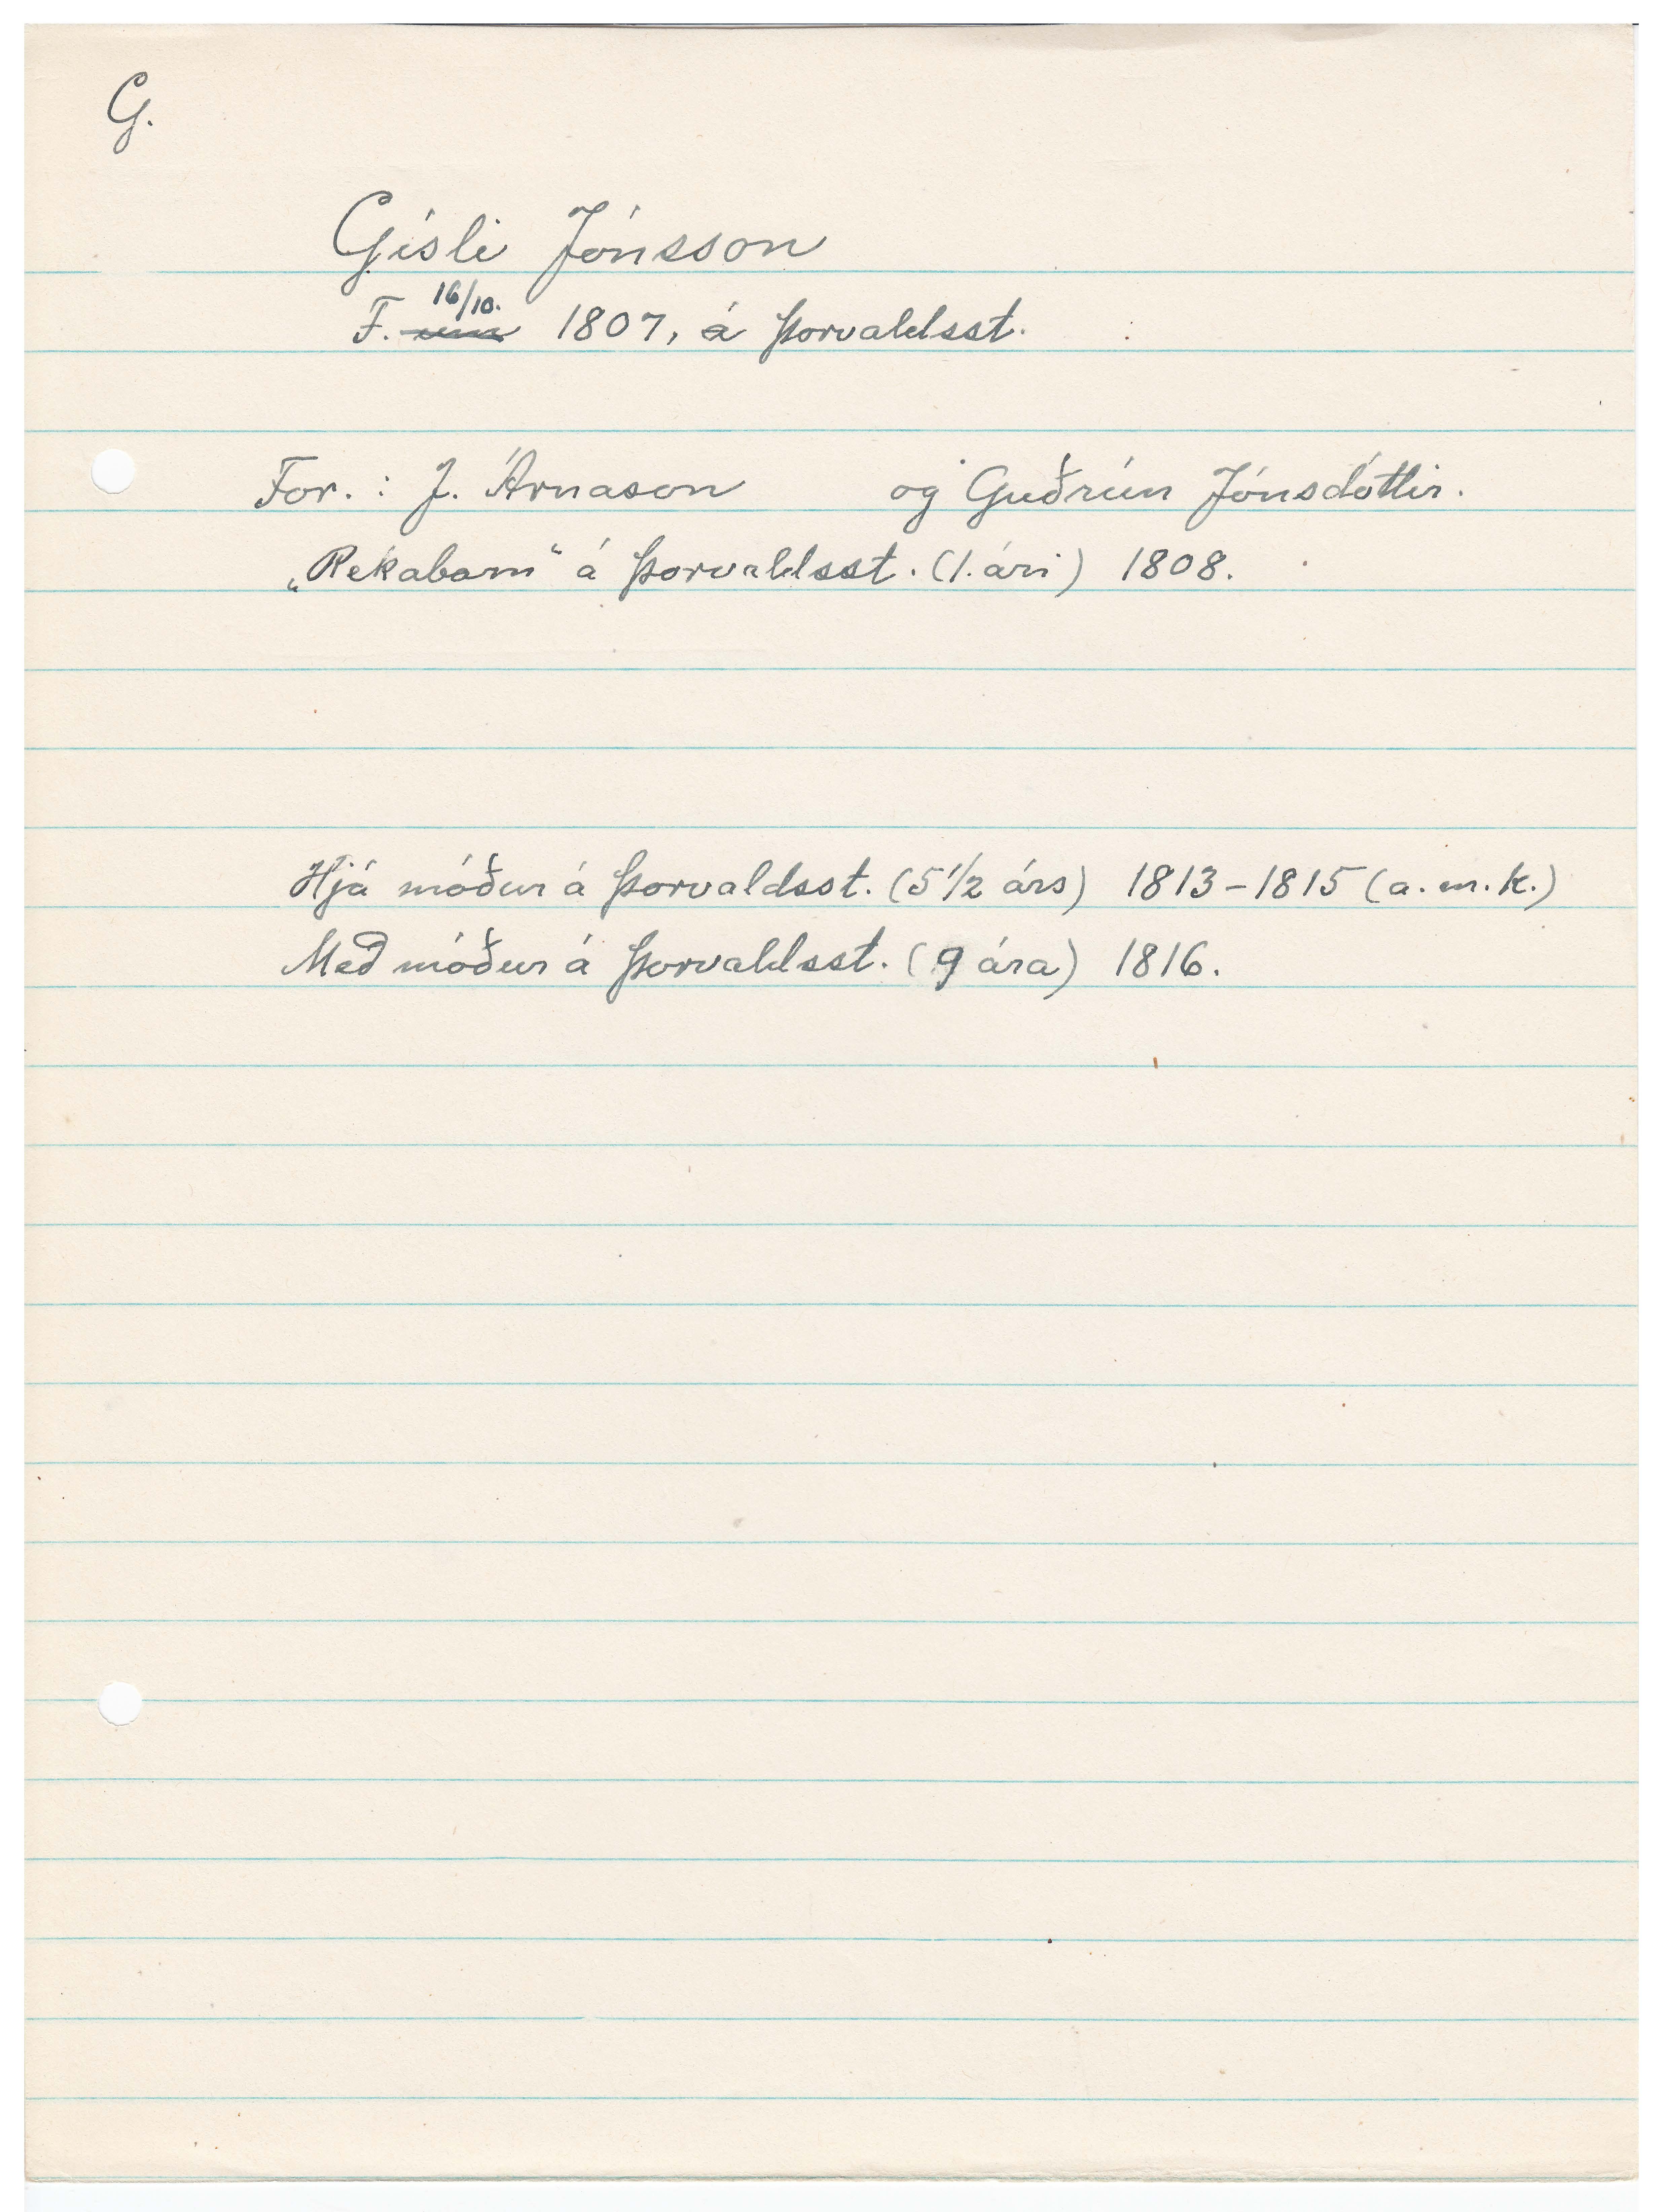 G.
Gísli Jónsson
F. 16/10. 1807, á Þorvaldsst.
For.: J. Árnason og Guðrún Jónsdóttir.
„Rekabarn“ á Þorvaldsst. (1. ári) 1808.
Hjá móður á Þorvaldsst. (5 1/2 árs) 1813-1815 (a.m.k.)
Með móður á Þorvaldsst. (9 ára) 1816.